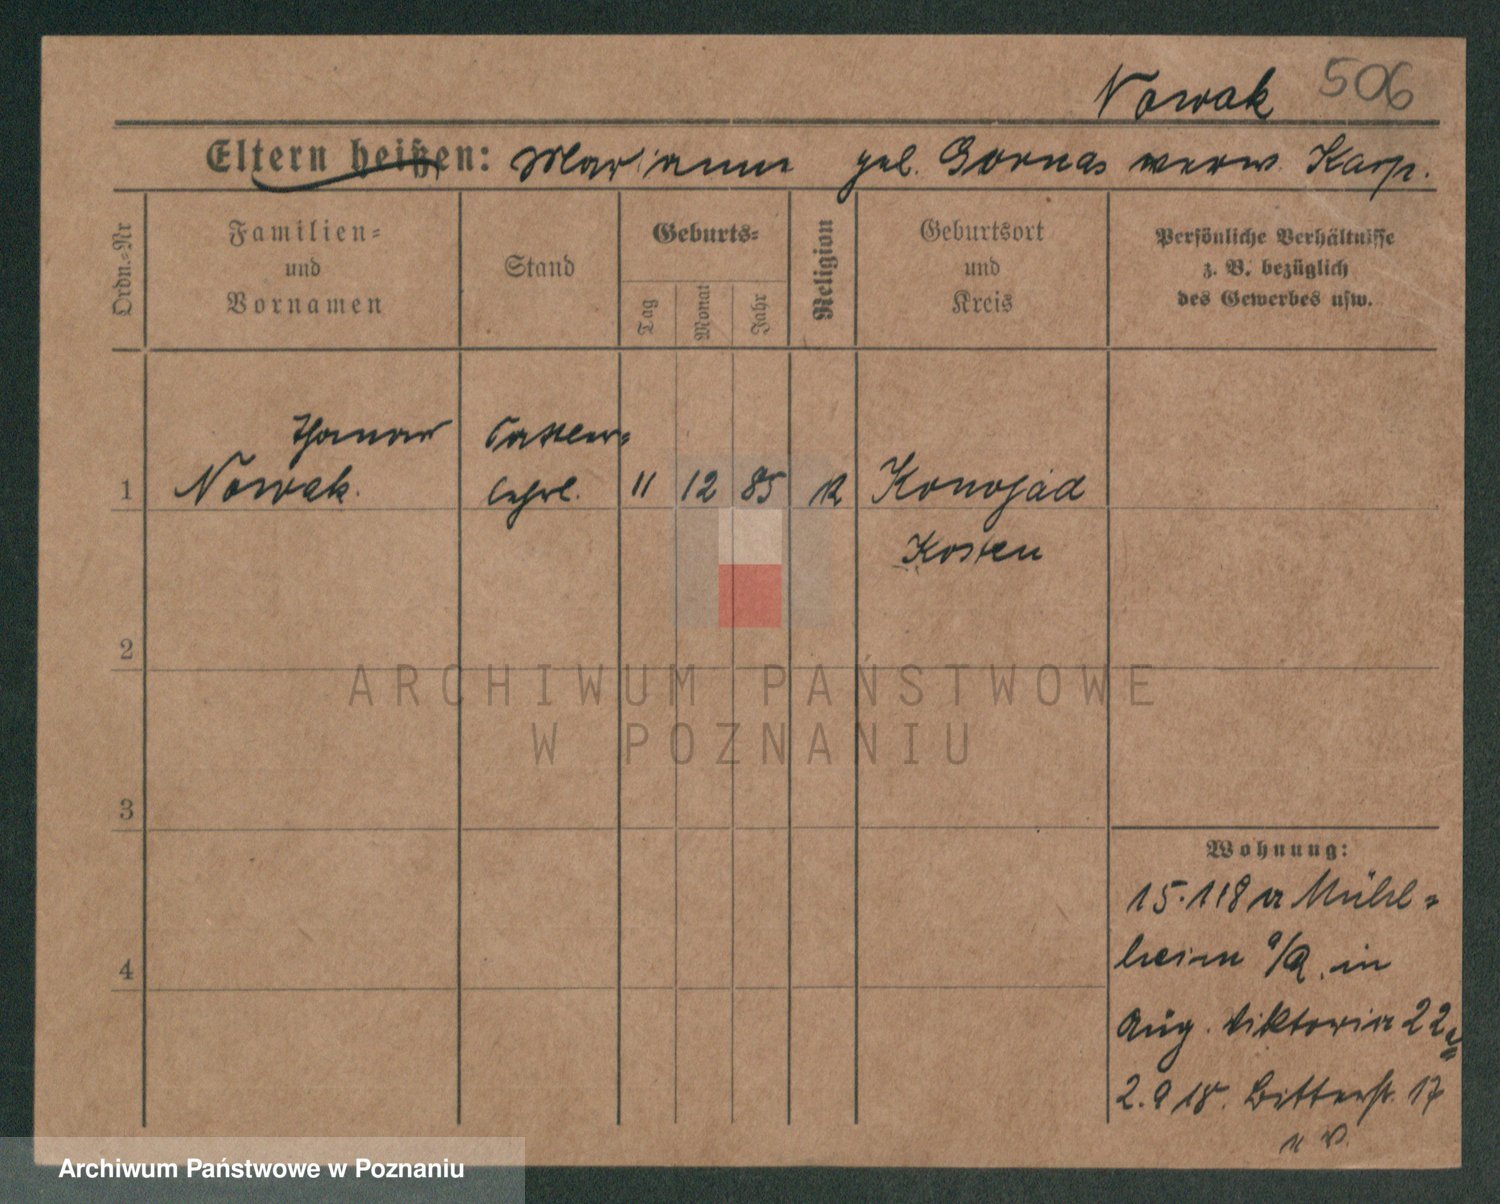 Nowak 506
Eltern heißen: Marianne geb. Gornas verw. Karp.
Ordn.-Nr
Familien-
und
Vornamen
Stand
Geburts-
Tag
Monat
Jahr
Religion
Geburtsort
und
Kreis
Persönliche Verhältnisse
z. B. bezüglich
des Gewerbes usw.
Thomas
Nowak.
Sattler-
1
11 12 85 k Konojad
Kosten
2
ARCHIWUM PAŃSTWOWE
W POZNANIU
3
Wohnung:
15.118 v Mühl-
heim a/R. in
4
Aug. Viktoria 22a
2.9 18. Bitterst. 17
Archiwum Państwowe w Poznaniu